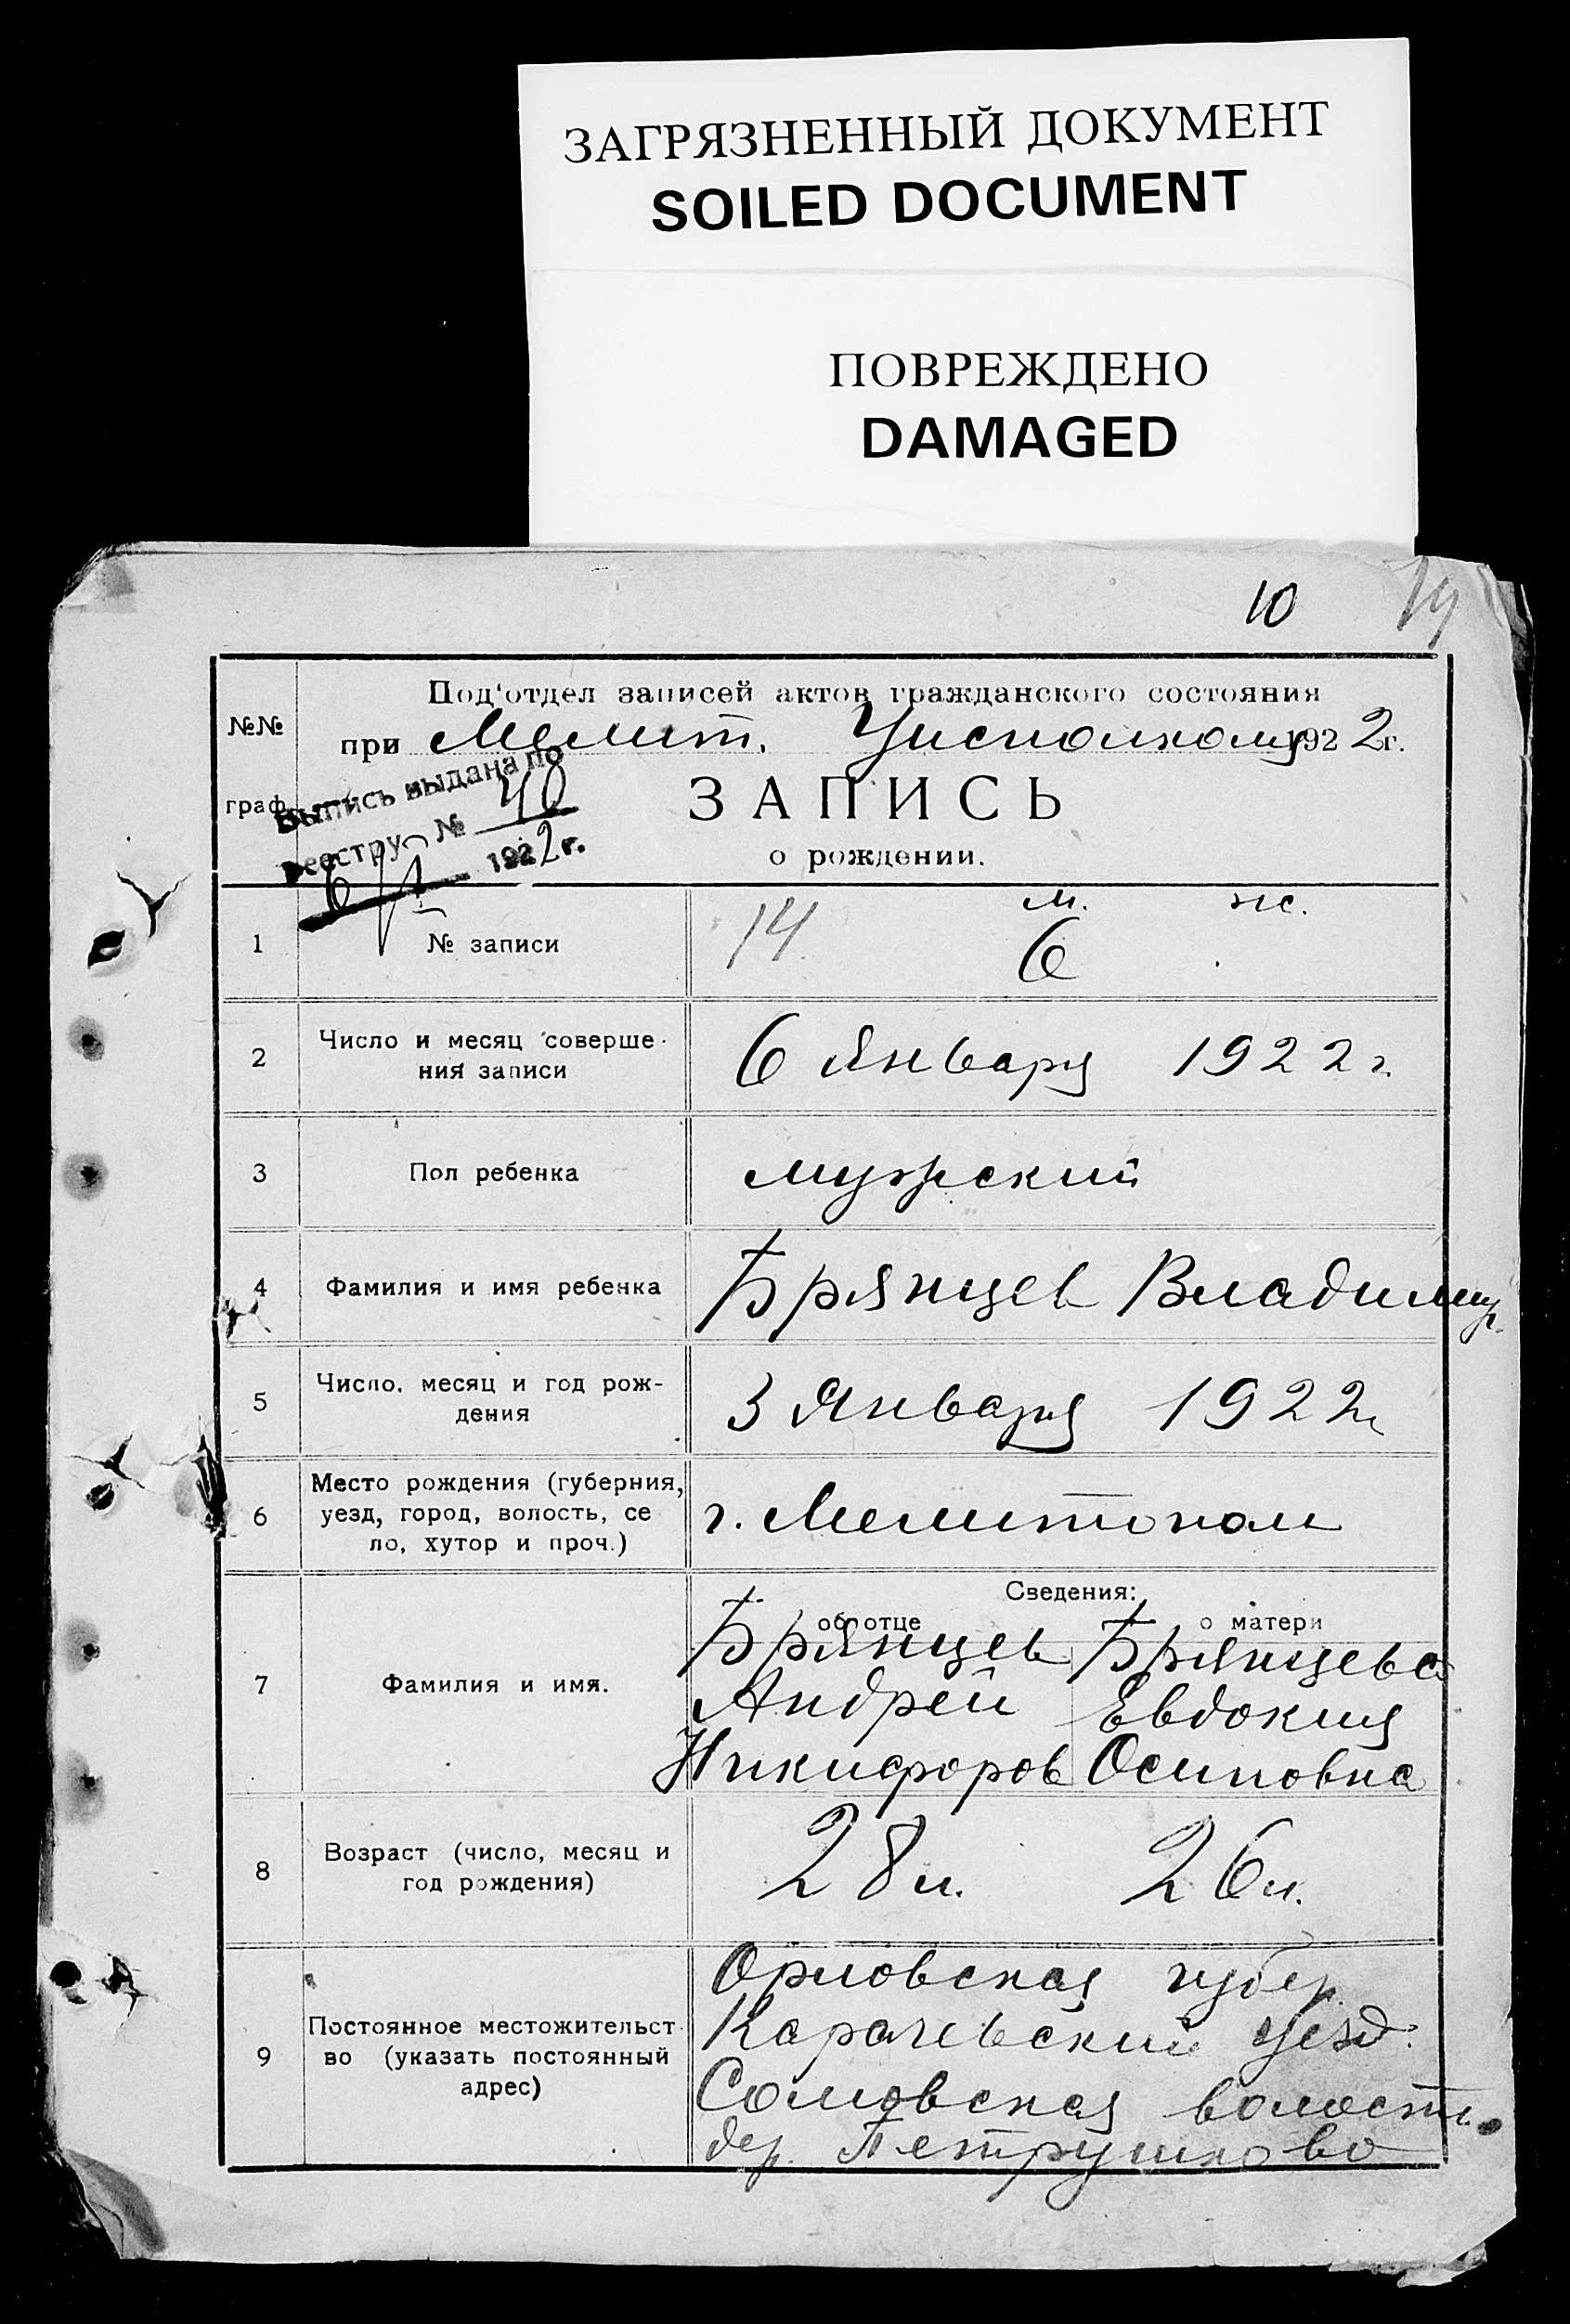 ЗАГРЯЗНЕННЫЙ ДОКУМЕНТ
SOILED DOCUMENT
ПОВРЕЖДЕНО
DAMAGED
10
№№
граф.
Под'отдел записей актов гражданского состояния
при Мелит. Уисполкому 1922г.
ЗАПИСЬ
о рождении.
Выпись выдана по
реестру № 40
1922г.
м. ж.
1 № записи 14 6
2 Число и месяц соверше-
ния записи
6 Января 1922 г.
3 Пол ребенка мужский
4 Фамилия и имя ребенка Брянцев Владимир
5 Число, месяц и год рож-
дения
3 Января 1922
6 Место рождения (губерния,
уезд, город, волость, се
ло, хутор и проч.)
г. Мелитополь
Сведения:
об отце о матери
7 Фамилия и имя.
Брянцев Брянцева
Андрей Евдокия
Никифоров Осиповна
8 Возраст (число, месяц и
год рождения)
28 л. 26 л.
9 Постоянное местожительст-
во (указать постоянный
адрес)
Орловская губер.
Карачевский уезд.
Сомовская волость.
дер. Петрушково